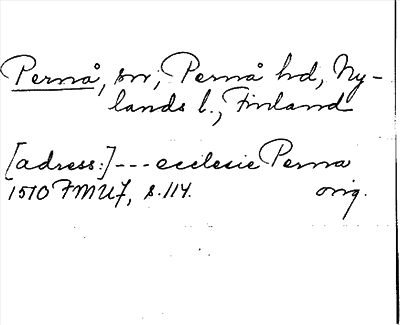 Pernå, sn, Pernå hd, Ny-
lands l., Finland
[adress:]--- ecclesie Perna
1510 FMU 7, s. 114. orig.